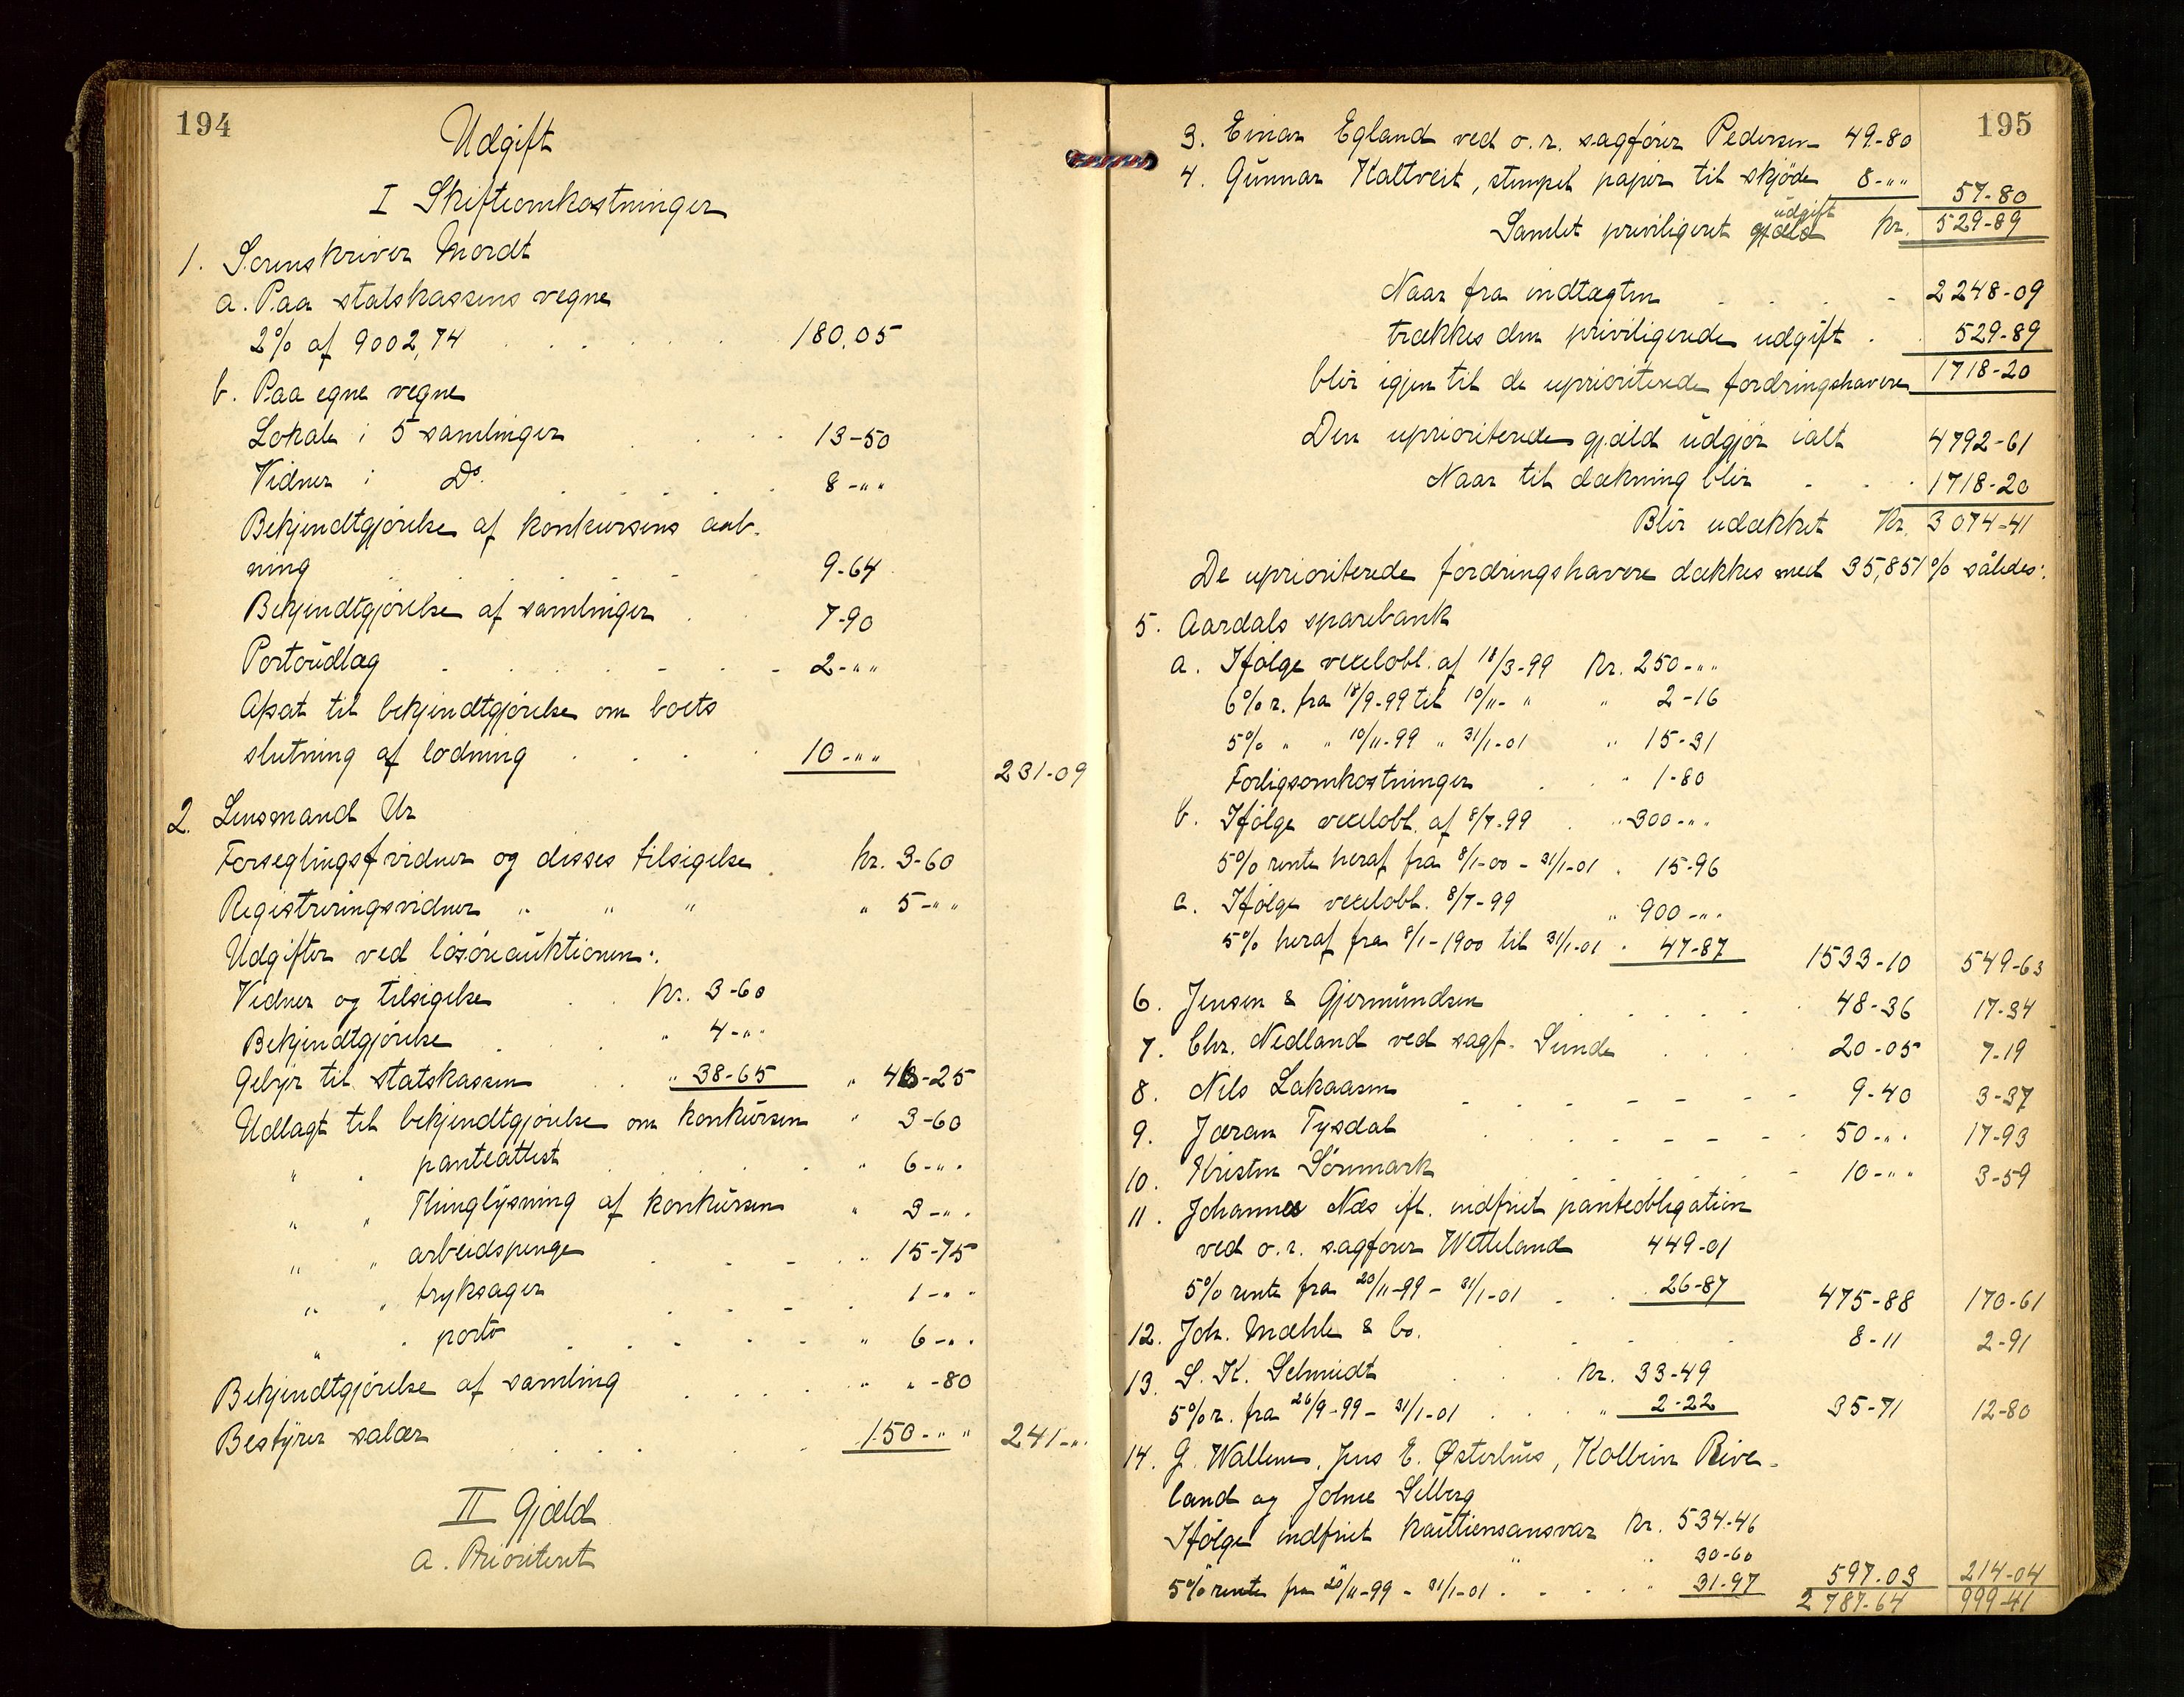 194
Udgift
I Skifteomkostninger
1. Sorenskriver Mordt
a. Paa statskassens vegne
2% af 9002,74 180,05
b. Paa egne vegne
Lokale i 5 samlinger 13-50
Vidner i Do. 8-" "
Bekjendtgjörelse af konkursens aab-
ning 9-64
Bekjendtgjörelse af samlinger 7-90
Portoudlæg 2-" "
Afsat til bekjendtgjörelse om boets
slutning af lodning 10-" " 231-09
2. Lensmand Ur
Forseglingsfvidner og disses tilsigelse kr. 3-60
Registreringsvidner " " " " 5-" "
Udgifter ved lösöreauktionen:
Vidner og tilsigelse kr. 3-60
Bekjendtgjörelse " 4-" "
Gebyr til statskassen " 38-65 " 46-25
Udlagt til bekjendtgjörelse om konkursen " 3-60
" " panteattest " 6-" "
" " Thinglysning af konkursen " 3-" "
" " arbeidspenge " 15-75
" " tryksager 1-" "
" " porto " 6-" "
Bekjendtgjörelse af samling " "-80
Bestyrer salær 150-" " 241-"
II Gjæld
a. Prioriteret
195
3. Einar Egland ved o.r. sagförer Pedersen 49-80
4. Gunnar Kaltveit, stempel papir til skjöde 8-" " 57-80
udgift
Samlet priviligeret gjæld kr. 529-89
Naar fra indtægten 2248-09
trækkes den priviligerede udgift 529-89
blir igjen til de uprioriterede fordringshavere 1718-20
Den uprioriterede gjæld udgjör ialt 4792-61
Naar til dækning blir 1718-20
Blir udækket kr. 3074-41
De uprioriterede fordringshavere dækkes med 35,851% således:
5. Aardals sparebank
a. Ifölge vexelobl. af 18/3-99 kr. 250-" "
6% r. fra 18/9-99 til 10/11- " " 2-16
5% " " 10/11-99 " 31/1-01 " 15-31
Forligsomkostninger " 1-80
b. Ifölge vexelobl. af 8/7-99 " 300-" "
5% rente heraf fra 8/1-00 - 31/1-01 " 15-96
c. Ifölge vexelobl. 8/7-99 " 900-" "
5% heraf fra 8/1-1900 til 31/1-01 " 47-87 1533-10 549-63
6. Jensen & Gjermundsen 48-36 17-34
7. Chr. Nedland ved sagf. Sunde 20-05 7-19
8. Nils Lakaasen 9-40 3-37
9. Jæran Tysdal 50-" " 17-93
10. Kristen Sörnmark 10-" " 3-59
11. Johannes Næs ift. indfriet panteobligation
ved o.r. sagförer Wetteland 449-01
5% rente fra 20/11-99 - 31/1-01 26-87 475-88 170-61
12. Joh. Mæhle & Co. 8-11 2-91
13. S. K. Schmidt kr. 33-49
5% r. fra 26/9-99 - 31/1-01 " 2-22 35-71 12-80
14. G. Wallem, Jens E. Østerhus, Kolbein Rive-
land og Jolme Selberg
Ifölge indfriet kautionsansvar kr. 534-46
" " 30-60
5% rente fra 20/11-99 - 31/1-01 " 31-97 597.03 214-04
2787-64 999-41